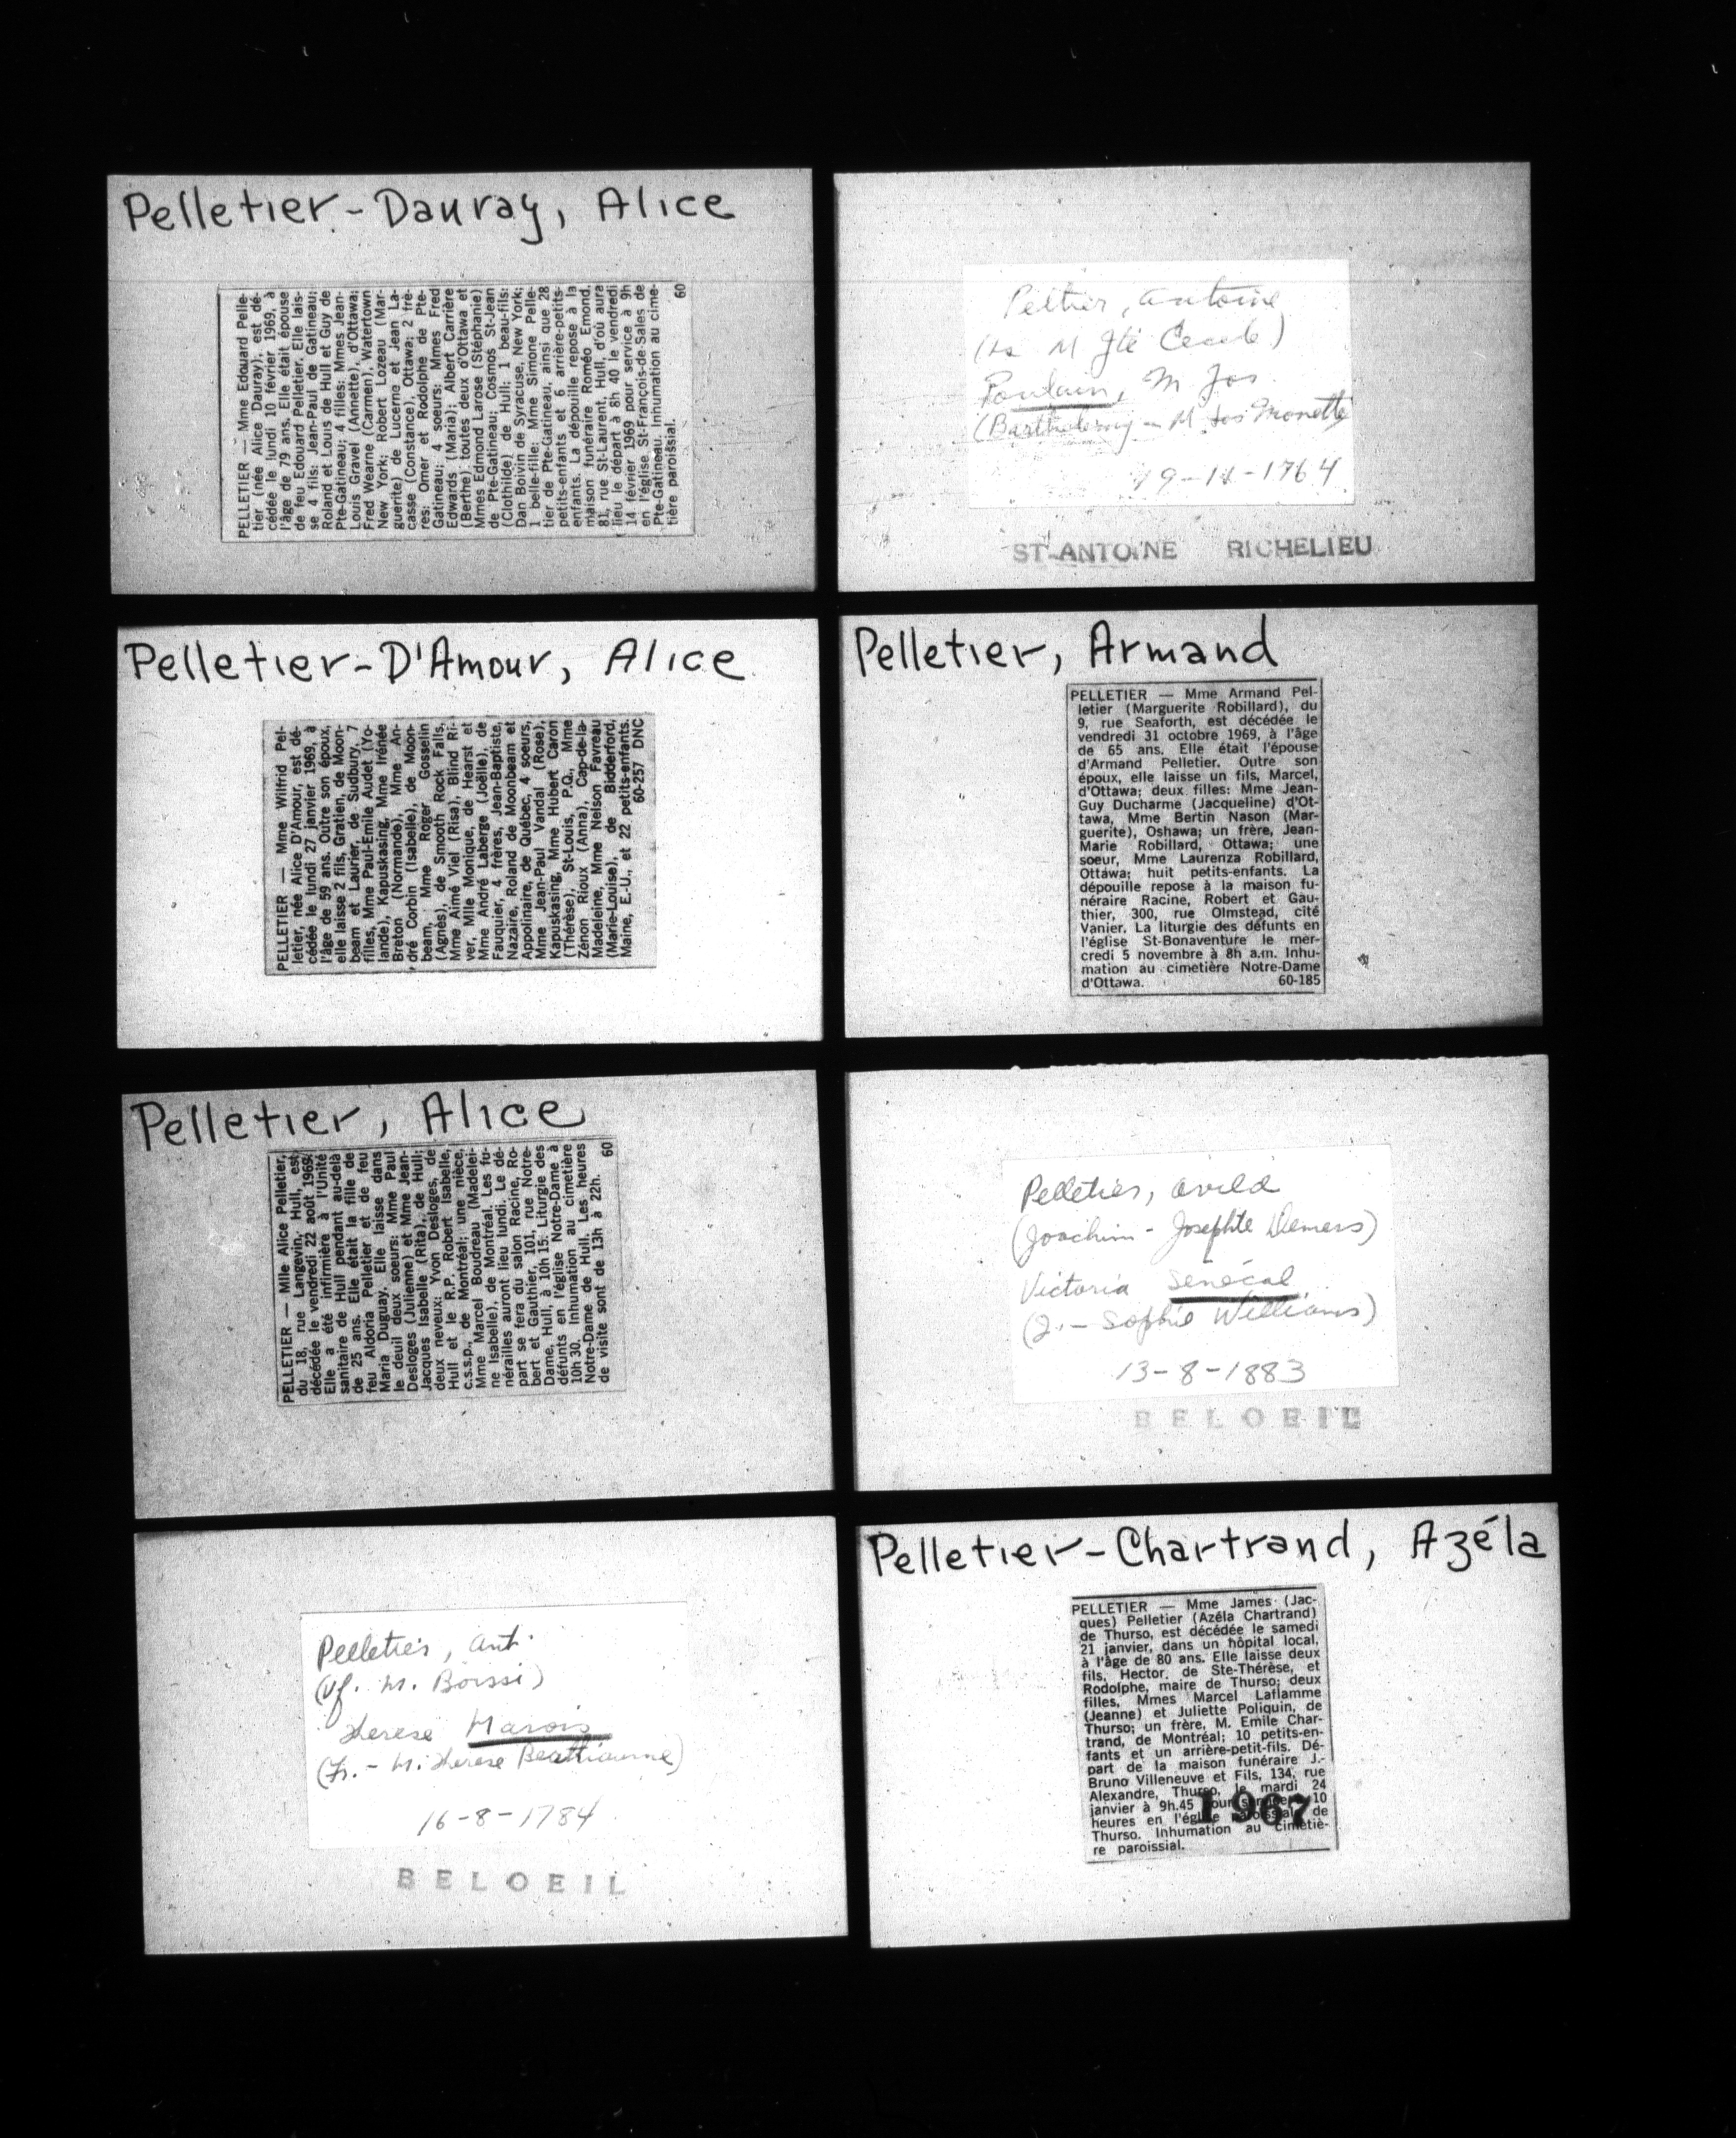 Pelletier-Dauray, Alice
PELLETIER — Mme Edouard Pelle-
tier (née Alice Dauray), est dé-
cédée le lundi 10 février 1969, à
l'âge de 79 ans. Elle était épouse
de feu Edouard Pelletier. Elle lais-
se 4 fils: Jean-Paul de Gatineau;
Roland et Louis de Hull et Guy de
Pte-Gatineau; 4 filles: Mmes Jean-
Louis Gravel (Annette), d'Ottawa;
Fred Wearne (Carmen), Watertown
New York; Robert Lozeau (Mar-
guerite) de Lucerne et Jean La-
casse (Constance), Ottawa; 2 frè-
res: Omer et Rodolphe de Pte-
Gatineau; 4 soeurs: Mmes Fred
Edwards (Maria); Albert Carrière
(Berthe) toutes deux d'Ottawa et
Mmes Edmond Larose (Stéphanie)
de Pte-Gatineau; Cosmos St-Jean
(Clothilde) de Hull; 1 beau-fils:
Dan Boivin de Syracuse, New York;
1 belle-fille: Mme Simone Pelle-
tier de Pte-Gatineau, ainsi que 28
petits-enfants et 6 arrière-petits-
enfants. La dépouille repose à la
maison funéraire Roméo Emond,
81, rue St-Laurent, Hull, d'où aura
lieu le départ à 8h 40 le vendredi
14 février 1969 pour service à 9h
en l'église St-François-de-Sales de
Pte-Gatineau. Inhumation au cime-
tière paroissial.
60
Peltier, Antoine
M Jte
Poulain, M Jos
(Barthelemy - M. Jos Monette
19-11-1764
ST-ANTOINE RICHELIEU
Pelletier-D'Amour, Alice
PELLETIER — Mme Wilfrid Pel-
letier, née Alice D'Amour, est dé-
cédée le lundi 27 janvier 1969, à
l'âge de 59 ans. Outre son époux,
elle laisse 2 fils, Gratien, de Moon-
beam et Laurier, de Sudbury, 7
filles, Mme Paul-Emile Audet (Yo-
lande), Kapuskasing, Mme Irénée
Breton (Normande), Mme An-
dré Corbin (Isabelle), de Moon-
beam, Mme Roger Gosselin
(Agnès), de Smooth Rock Falls,
Mme Aimé Viel (Risa), Blind Ri-
ver, Mlle Monique, de Hearst et
Mme André Laberge (Joëlle), de
Fauquier, 4 frères, Jean-Baptiste,
Nazaire, Roland de Moonbeam et
Appolinaire, de Québec, 4 soeurs,
Mme Jean-Paul Vandal (Rose),
Kapuskasing, Mme Hubert Caron
(Thérèse), St-Louis, P.Q., Mme
Zénon Rioux (Anna), Cap-de-la-
Madeleine, Mme Nelson Favreau
(Marie-Louise), de Bidderford,
Maine, E.-U., et 22 petits-enfants.
60-257 DNC
Pelletier, Armand
PELLETIER — Mme Armand Pel-
letier (Marguerite Robillard), du
9, rue Seaforth, est décédée le
vendredi 31 octobre 1969, à l'âge
de 65 ans. Elle était l'épouse
d'Armand Pelletier. Outre son
époux, elle laisse un fils, Marcel,
d'Ottawa; deux filles: Mme Jean-
Guy Ducharme (Jacqueline) d'Ot-
tawa, Mme Bertin Nason (Mar-
guerite), Oshawa; un frère, Jean-
Marie Robillard, Ottawa; une
soeur, Mme Laurenza Robillard,
Ottawa; huit petits-enfants. La
dépouille repose à la maison fu-
néraire Racine, Robert et Gau-
thier, 300, rue Olmstead, cité
Vanier. La liturgie des défunts en
l'église St-Bonaventure le mer-
credi 5 novembre à 8h a.m. Inhu-
mation au cimetière Notre-Dame
d'Ottawa. 60-185
Pelletier, Alice
PELLETIER — Mlle Alice Pelletier,
du 18, rue Langevin, Hull, est
décédée le vendredi 22 août 1969.
Elle a été infirmière à l'Unité
sanitaire de Hull pendant au-delà
de 25 ans. Elle était la fille de
feu Aldoria Pelletier et de feu
Maria Duguay. Elle laisse dans
le deuil deux soeurs: Mme Paul
Desloges (Julienne) et Mme Jean-
Jacques Isabelle (Rita), de Hull;
deux neveux: Yvon Desloges, de
Hull et le R.P. Robert Isabelle,
c.s.s.p., de Montréal; une nièce,
Mme Marcel Boudreau (Madelei-
ne Isabelle), de Montréal. Les fu-
nérailles auront lieu lundi. Le dé-
part se fera du salon Racine, Ro-
bert et Gauthier, 101, rue Notre-
Dame, Hull, à 10h 15. Liturgie des
défunts en l'église Notre-Dame à
10h 30. Inhumation au cimetière
Notre-Dame de Hull. Les heures
de visite sont de 13h à 22h. 60
Pelletier, Ovila
(Joachim - Josephte Demers)
Victoria Senécal
(J. - Sophie Williams)
13-8-1883
BELOEIL
Pelletier, Ant.
(vf. M. Boissi)
Therese Marois
(Fr. - M. Therese Beathiaume)
16-8-1784
BELOEIL
Pelletier-Chartrand, Azéla
PELLETIER — Mme James (Jac-
ques) Pelletier (Azéla Chartrand)
de Thurso, est décédée le samedi
21 janvier, dans un hôpital local,
à l'âge de 80 ans. Elle laisse deux
fils, Hector, de Ste-Thérèse, et
Rodolphe, maire de Thurso; deux
filles, Mmes Marcel Laflamme
(Jeanne) et Juliette Poliquin, de
Thurso; un frère, M. Emile Char-
trand, de Montréal; 10 petits-en-
fants et un arrière-petit-fils. Dé-
part de la maison funéraire J.-
Bruno Villeneuve et Fils, 134, rue
Alexandre, Thurso, le mardi 24
janvier à 9h.45 pour service à 10
heures en l'église paroissiale de
Thurso. Inhumation au cimetiè-
re paroissial.
1967